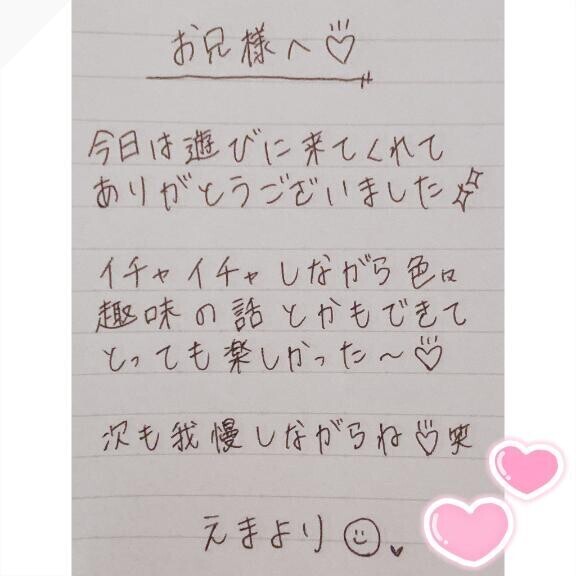 お兄様へ♡
今日は遊びに来てくれて
ありがとうございました
イチャイチャしながら色ロ
趣味の話とかもできて
とっても楽しかった〜♡
次も我慢しながらね♡笑
えまより